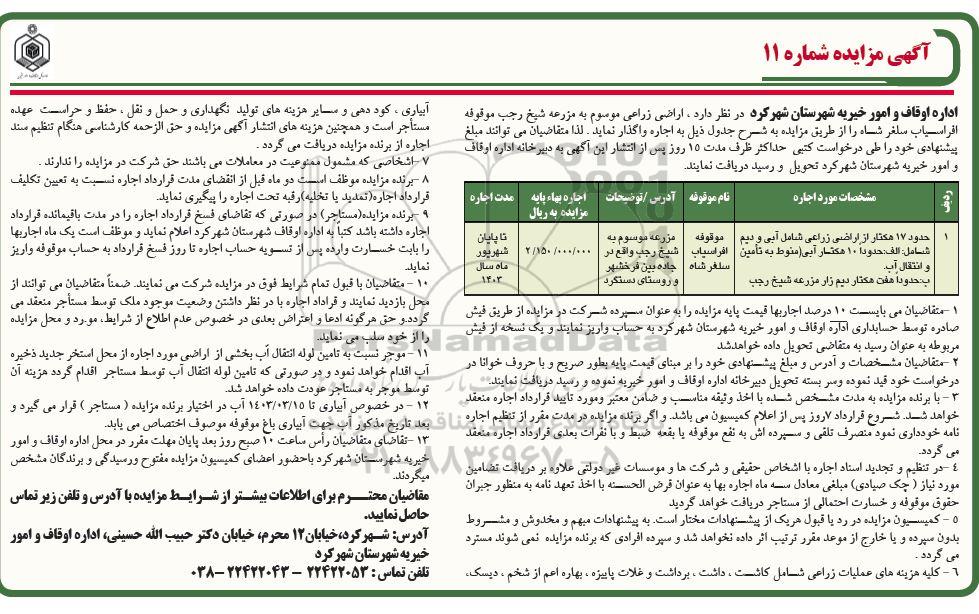 آگهی مزایده شماره ۱۱
اداره اوقاف و امور خیریه شهرستان شهرکرد در نظر دارد ، اراضی زراعی موسوم به مزرعه شیخ رجب موقوفه
افراسیاب سلغر شاه را از طریق مزایده به شرح جدول ذیل به اجاره واگذار نماید . لذا متقاضیان می توانند مبلغ
پیشنهادی خود را طی درخواست کتبی حداکثر ظرف مدت ۱۵ روز پس از انتشار این آگهی به دبیرخانه اداره اوقاف
و امور خیریه شهرستان شهرکرد تحویل و رسید دریافت نمایند.
ردیف	مشخصات مورد اجاره	نام موقوفه	آدرس /توضیحات	اجاره بهاء پایه مزایده به ریال	مدت اجاره
۱	حدود ۱۷ هکتار از اراضی زراعی شامل آبی و دیم شامل: الف:حدودا ۱۰ هکتار آبی(منوط به تأمین و انتقال آب. ب:حدوداً هفت هکتار دیم زار مزرعه شیخ رجب	موقوفه افراسیاب سلغر شاه	مزرعه موسوم به شیخ رجب واقع در جاده بین فرخشهر و روستای دستگرد	۲/۱۵۰/۰۰۰/۰۰۰	تا پایان شهریور ماه سال ۱۴۰۳
۱ -متقاضیان می بایست ۱۰ درصد اجاربها قیمت پایه مزایده را به عنوان سپرده شرکت در مزایده از طریق فیش
صادره توسط حسابداری اداره اوقاف و امور خیریه شهرستان شهرکرد به حساب واریز نمایند و یک نسخه از فیش
مربوطه به عنوان رسید به متقاضی تحویل داده خواهدشد
۲ -متقاضیان مشخصات و آدرس و مبلغ پیشنهادی خود را بر مبنای قیمت پایه بطور صریح و با حروف خوانا در
درخواست خود قید نموده وسر بسته تحویل دبیرخانه اداره اوقاف و امور خیریه نموده و رسید دریافت نمایند.
۳ - با برنده مزایده به مدت مشخص شده با اخذ وثیقه مناسب و ضامن معتبر ومورد تأیید قرارداد اجاره منعقد
خواهد شد. شروع قرارداد ۷روز پس از اعلام کمیسیون می باشد. و اگر برنده مزایده در مدت مقرر از تنظیم اجاره
نامه خودداری نمود منصرف تلقی و سپرده اش به نفع موقوفه یا بقعه ضبط و با نفرات بعدی قرارداد اجاره منعقد
می گردد.
۴ -در تنظیم و تجدید اسناد اجاره با اشخاص حقیقی و شرکت ها و موسسات غیر دولتی علاوه بر دریافت تضامین
مورد نیاز ( چک صیادی) مبلغی معادل سه ماه اجاره بها به عنوان قرض الحسنه با اخذ تعهد نامه به منظور جبران
حقوق موقوفه و خسارت احتمالی از مستاجر دریافت خواهد گردید
۵ - کمیسیون مزایده در رد یا قبول هریک از پیشنهادات مختار است. به پیشنهادات مبهم و مخدوش و مشروط
بدون سپرده و یا خارج از موعد مقرر ترتیب اثر داده نخواهد شد و سپرده افرادی که برنده مزایده نمی شوند مسترد
می گردد .
۶ - کلیه هزینه های عملیات زراعی شامل کاشت ، داشت ، برداشت و غلات پاییزه ، بهاره اعم از شخم ، دیسک،
آبیاری ، کود دهی و سایر هزینه های تولید نگهداری و حمل و نقل ، حفظ و حراست عهده
مستأجر است و همچنین هزینه های انتشار آگهی مزایده و حق الزحمه کارشناسی هنگام تنظیم سند
اجاره از برنده مزایده دریافت می گردد .
۷ -اشخاصی که مشمول ممنوعیت در معاملات می باشند حق شرکت در مزایده را ندارند .
۸ -برنده مزایده موظف است دو ماه قبل از انقضای مدت قرارداد اجاره نسبت به تعیین تکلیف
قرارداد اجاره(تمدید یا تخلیه)رقبه تحت اجاره را پیگیری نماید.
۹ -برنده مزایده(مستاجر) در صورتی که تقاضای فسخ قرارداد اجاره را در مدت باقیمانده قرارداد
اجاره داشته باشد کتباً به اداره اوقاف شهرستان شهرکرد اعلام نماید و موظف است یک ماه اجاربها
را بابت خسارت وارده پس از تسویه حساب اجاره تا روز فسخ قرارداد به حساب موقوفه واریز
نماید.
۱۰ - متقاضیان با قبول تمام شرایط فوق در مزایده شرکت می نمایند. ضمناً متقاضیان می توانند از
محل بازدید نمایند و قراداد اجاره با در نظر داشتن وضعیت موجود ملک توسط مستأجر منعقد می
گردد.و حق هرگونه ادعا و اعتراض بعدی در خصوص عدم اطلاع از شرایط، مو.رد و محل مزایده
را از خود سلب می نماید.
۱۱ - موجر نسبت به تامین لوله انتقال آب بخشی از اراضی مورد اجاره از محل استخر جدید ذخیره
آب اقدام خواهد نمود و در صورتی که تامین لوله انتقال آب توسط مستاجر اقدام گردد هزینه آن
توسط موجر به مستاجر عودت داده خواهد شد.
۱۲ - در خصوص آبیاری تا ۱۴۰۳/۰۳/۱۵ آب در اختیار برنده مزایده ( مستاجر ) قرار می گیرد و
بعد تاریخ مذکور آب جهت آبیاری باغ موقوفه موصوف اختصاص می یابد.
۱۳ -تقاضای متقاضیان رأس ساعت ۱۰ صبح روز بعد پایان مهلت مقرر در محل اداره اوقاف و امور
خیریه شهرستان شهرکرد باحضور اعضای کمیسیون مزایده مفتوح ورسیدگی و برندگان مشخص
میگردند.
متقاضیان محترم برای اطلاعات بیشتر از شرایط مزایده با آدرس و تلفن زیر تماس
حاصل نمایید.
آدرس: شهرکرد،خیابان۱۲ محرم، خیابان دکتر حبیب الله حسینی، اداره اوقاف و امور
خیریه شهرستان شهرکرد
تلفن تماس : ۲۲۴۲۲۰۵۳ – ۲۲۴۲۲۰۴۳ –۰۳۸
ParsNamadData
۰۲۱-۸۸۳۴۹۶۷۰-۵